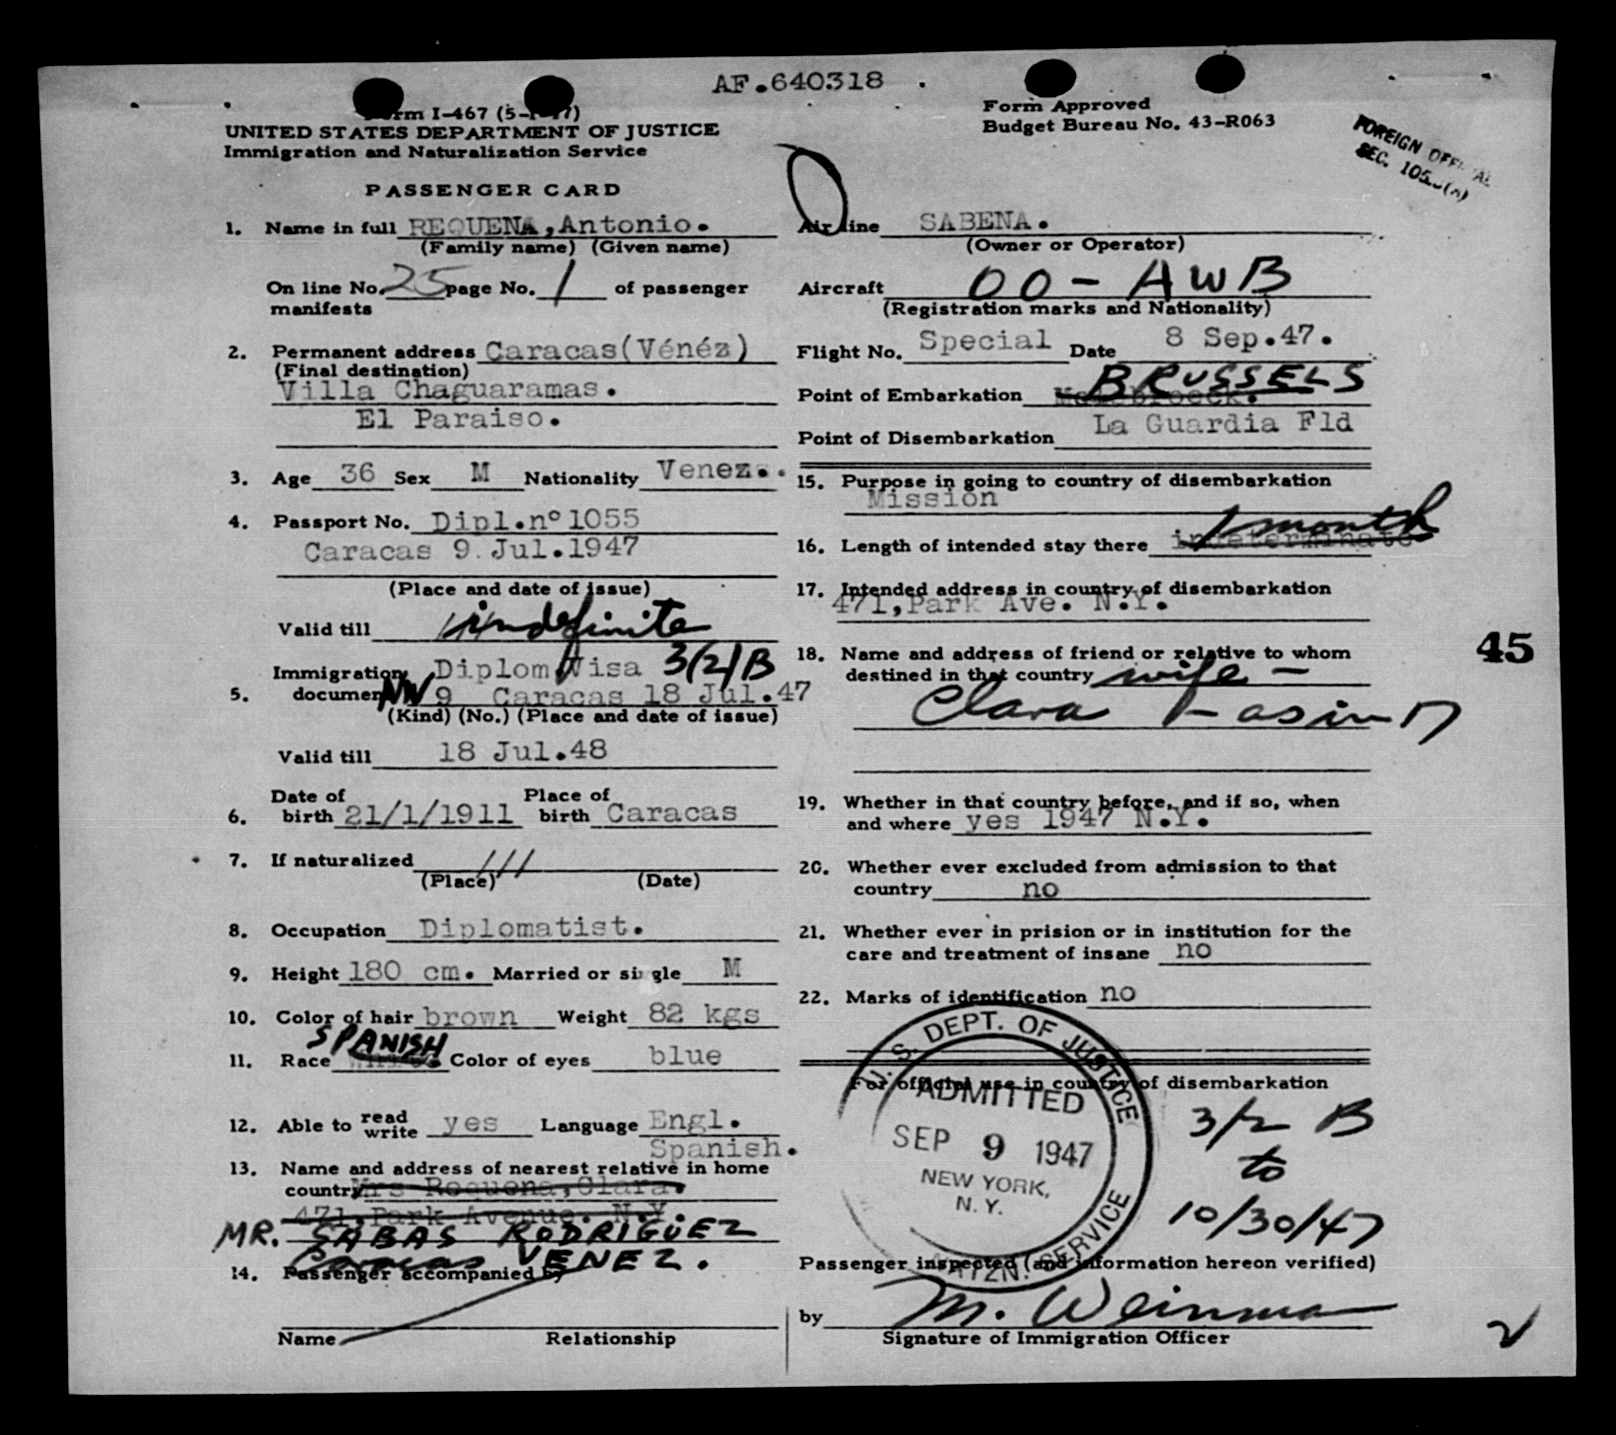 AF.640318 .
Form I-467 (5-1-47)
UNITED STATES DEPARTMENT OF JUSTICE
Immigration and Naturalization Service
PASSENGER CARD
Form Approved
Budget Bureau No. 43-R063
FOREIGN OFFICIAL
SEC.
1. Name in full REQUENA,Antonio.
(Family name) (Given name)
On line No. 25 page No. 1 of passenger
manifests
2. Permanent address Caracas(Vénéz)
(Final destination)
Villa Chaguaramas.
El Paraiso.
3. Age 36 Sex M Nationality Venez..
4. Passport No. Dipl.n°1055
Caracas 9.Jul.1947
(Place and date of issue)
Valid till indefinite
Immigration Diplom Visa 3(2)B
5. document NW 9 Caracas 18 Jul.47
(Kind) (No.) (Place and date of issue)
Valid till 18 Jul.48
6. Date of birth 21/1/1911 Place of birth Caracas
7. If naturalized ///
(Place) (Date)
8. Occupation Diplomatist.
9. Height 180 cm. Married or single M
10. Color of hair brown Weight 82 kgs
11. Race SPANISH Color of eyes blue
12. Able to read write yes Language Engl.
Spanish.
13. Name and address of nearest relative in home
country Mrs Requena,Clara.
471,Park Avenue. N.Y.
MR. SABAS RODRIGUEZ
Caracas VENEZ.
14. Passenger accompanied by
Name Relationship
Airline SABENA.
(Owner or Operator)
Aircraft OO-AWB
(Registration marks and Nationality)
Flight No. Special Date 8 Sep.47.
Point of Embarkation BRUSSELS
Point of Disembarkation La Guardia Fld
15. Purpose in going to country of disembarkation
Mission
16. Length of intended stay there indeterminate 1 month
17. Intended address in country of disembarkation
471,Park Ave. N.Y.
45
18. Name and address of friend or relative to whom
destined in that country wife -
Clara
19. Whether in that country before, and if so, when
and where yes 1947 N.Y.
20. Whether ever excluded from admission to that
country no
21. Whether ever in prision or in institution for the
care and treatment of insane no
22. Marks of identification no
For official use in country of disembarkation
U. S. DEPT. OF JUSTICE
ADMITTED
SEP 9 1947
NEW YORK,
N. Y.
SERVICE
3/2 B
to
10/30/47
Passenger inspected (and information hereon verified)
by M. Weinman
Signature of Immigration Officer